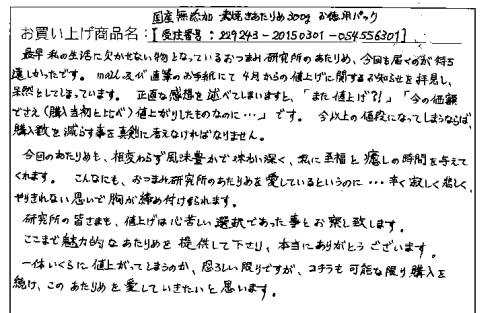 国産無添加 素焼きあたりめ300g お徳用パック
お買い上げ商品名:【受注番号:229243-20150301-054556301】
最早私の生活に欠かせない物となっているおつまみ研究所のあたりめ、今回も届くのが待ち
遠しかったです。mail及び直筆のお手紙にて4月からの値上げに関するお知らせを拝見し、
呆然としてしまっています。正直な感想を述べてしまいますと、「また値上げ?!」「今の価額
でさえ(購入当初と比べ)値上がりしたものなのに…」です。今以上の値段になってしまうならば、
購入数を減らす事を真剣に考えなければなりません。
今回のあたりめも、相変わらず風味豊かで味わい深く、私に至福と癒しの時間を与えて
くれます。こんなにも、おつまみ研究所のあたりめを愛しているというのに…辛く寂しく悲しく、
やりきれない思いで胸が締め付けられます。
研究所の皆さまも、値上げは心苦しい選択であった事とお察し致します。
ここまで魅力的なあたりめを提供して下さり、本当にありがとうございます。
一体いくらに値上がってしまうのか、恐ろしい限りですが、コチラも可能な限り購入を
続け、このあたりめを愛していきたいと思います。